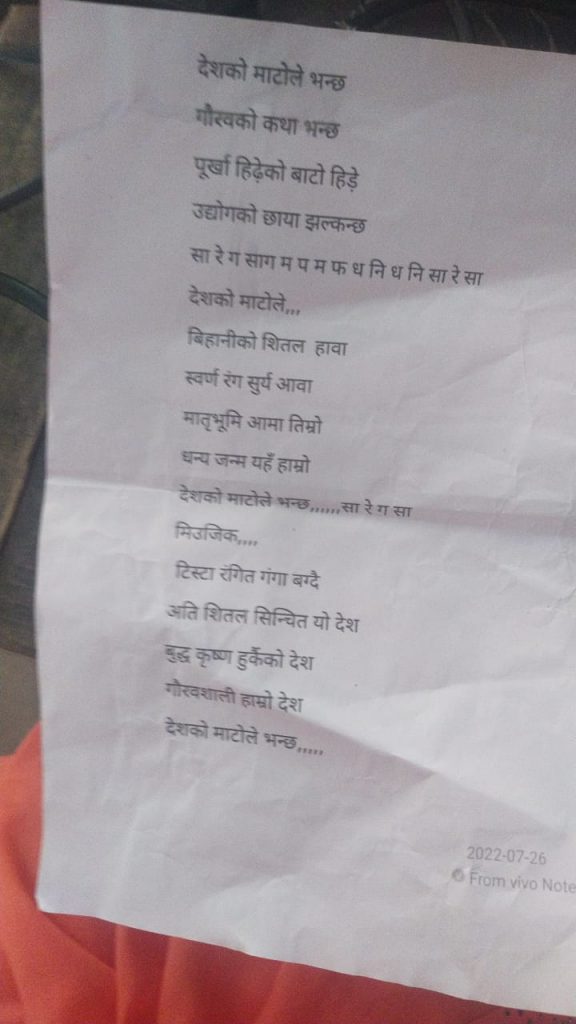 देशको माटोले भन्छ
गौरवको कथा भन्छ
पूर्खा हिढ़ेको बाटो हिड़े
उद्योगको छाया झल्कन्छ
सा रे ग साग म प म फ ध नि ध नि सा रे सा
देशको माटोले,,,
बिहानीको शितल हावा
स्वर्ण रंग सुर्य आवा
मातृभूमि आमा तिम्रो
धन्य जन्म यहँ हाम्रो
देशको माटोले भन्छ,,,,,,सा रे ग सा
मिउजिक,,,,
टिस्टा रंगित गंगा बग्दै
अति शितल सिन्चित यो देश
बुद्ध कृष्ण हुर्कैको देश
गौरवशाली हाम्रो देश
देशको माटोले भन्छ,,,,,
2022-07-26
From vivo Note